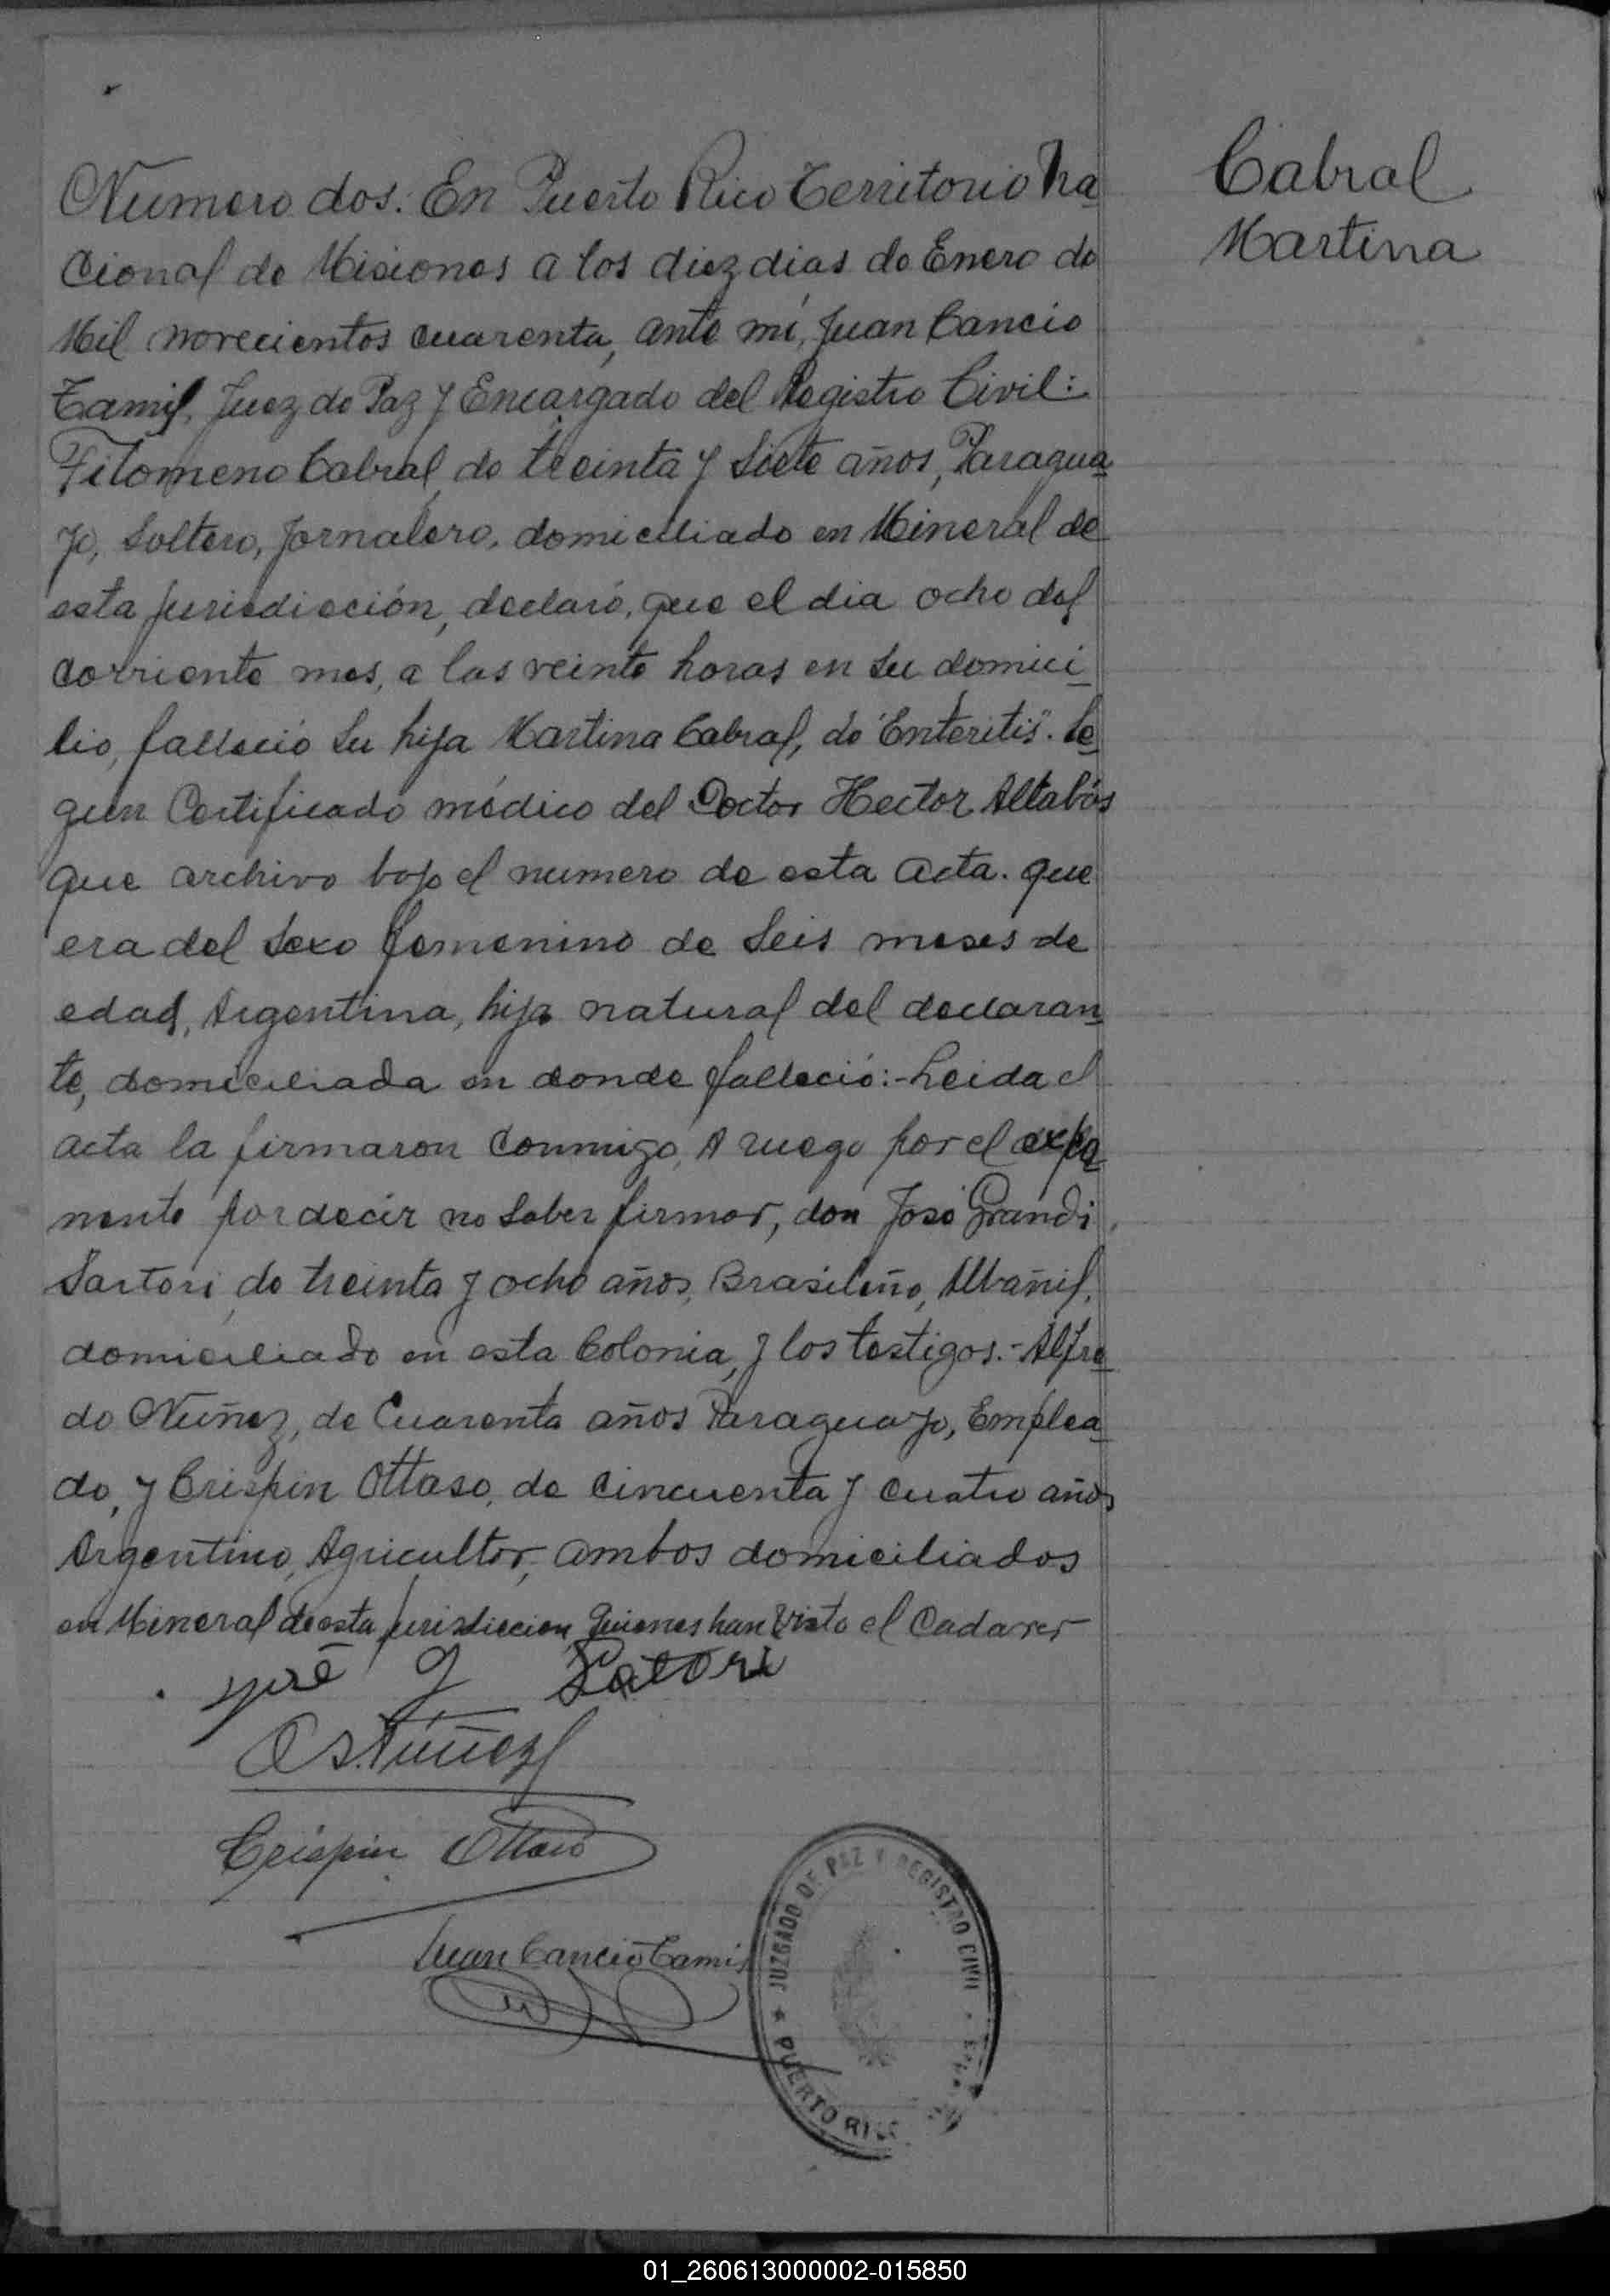 Numero dos. En Puerto Rico Territorio Na
cional de Misiones a los diez dias de Enero de
Mil novecientos cuarenta, ante mí, Juan Cancio
Tamis, Juez de Paz y Encargado del Registro Civil:
Filomeno Cabral, de treinta y siete años, Paragua
yo, Soltero, Jornalero, domiciliado en Mineral de
esta jurisdicción, declaró, que el dia ocho del
corriente mes, a las veinte horas en su domici
lio, falleció su hija Martina Cabral, de "Enteritis". Se
gun Certificado médico del Doctor Hector Altabás
que archivo bajo el numero de esta acta. que
era del sexo femenino de seis meses de
edad, Argentina, hija natural del declaran
te, domiciliada en donde falleció:- Leida el
acta la firmaron conmigo, A ruego por el expo
nente por decir no saber firmar, don José Grandi
Sartori, de treinta y ocho años, Brasileño, Albañil,
domiciliado en esta Colonia, y los testigos.- Alfre
do Nuñez, de Cuarenta años Paraguayo, Emplea
do, y Crispin Ottaso, de cincuenta y cuatro años
Argentino, Agricultor, ambos domiciliados
en Mineral de esta jurisdiccion, quienes han visto el Cadaver
José G Satori
Nuñez
Crispin Ottaso
Juan Cancio Tamis
JUZGADO DE PAZ Y REGISTRO CIVIL
PUERTO RICO
Cabral
Martina
01_260613000002-015850